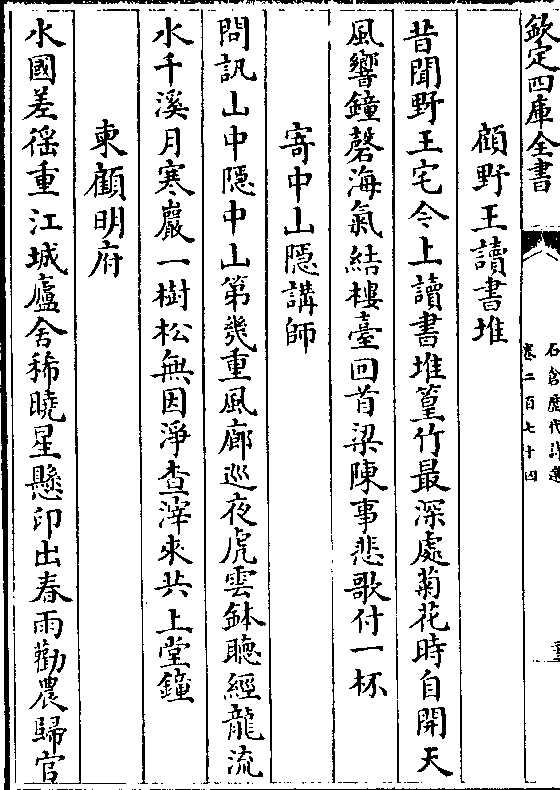 欽定四庫全書
石倉歷代詩選
卷二百七十四
顧野王讀書堆
昔聞野王宅今上讀書堆篁竹最深處菊花時自開天
風響鐘磬海氣結樓臺回首梁陳事悲歌付一杯
寄中山隱講師
問訊山中隱中山第幾重風廊巡夜虎雲鉢聽經龍流
水千溪月寒巖一樹松無因淨查滓來共上堂鐘
柬顧明府
水國差徭重江城廬舍稀曉星懸印出春雨勸農歸官